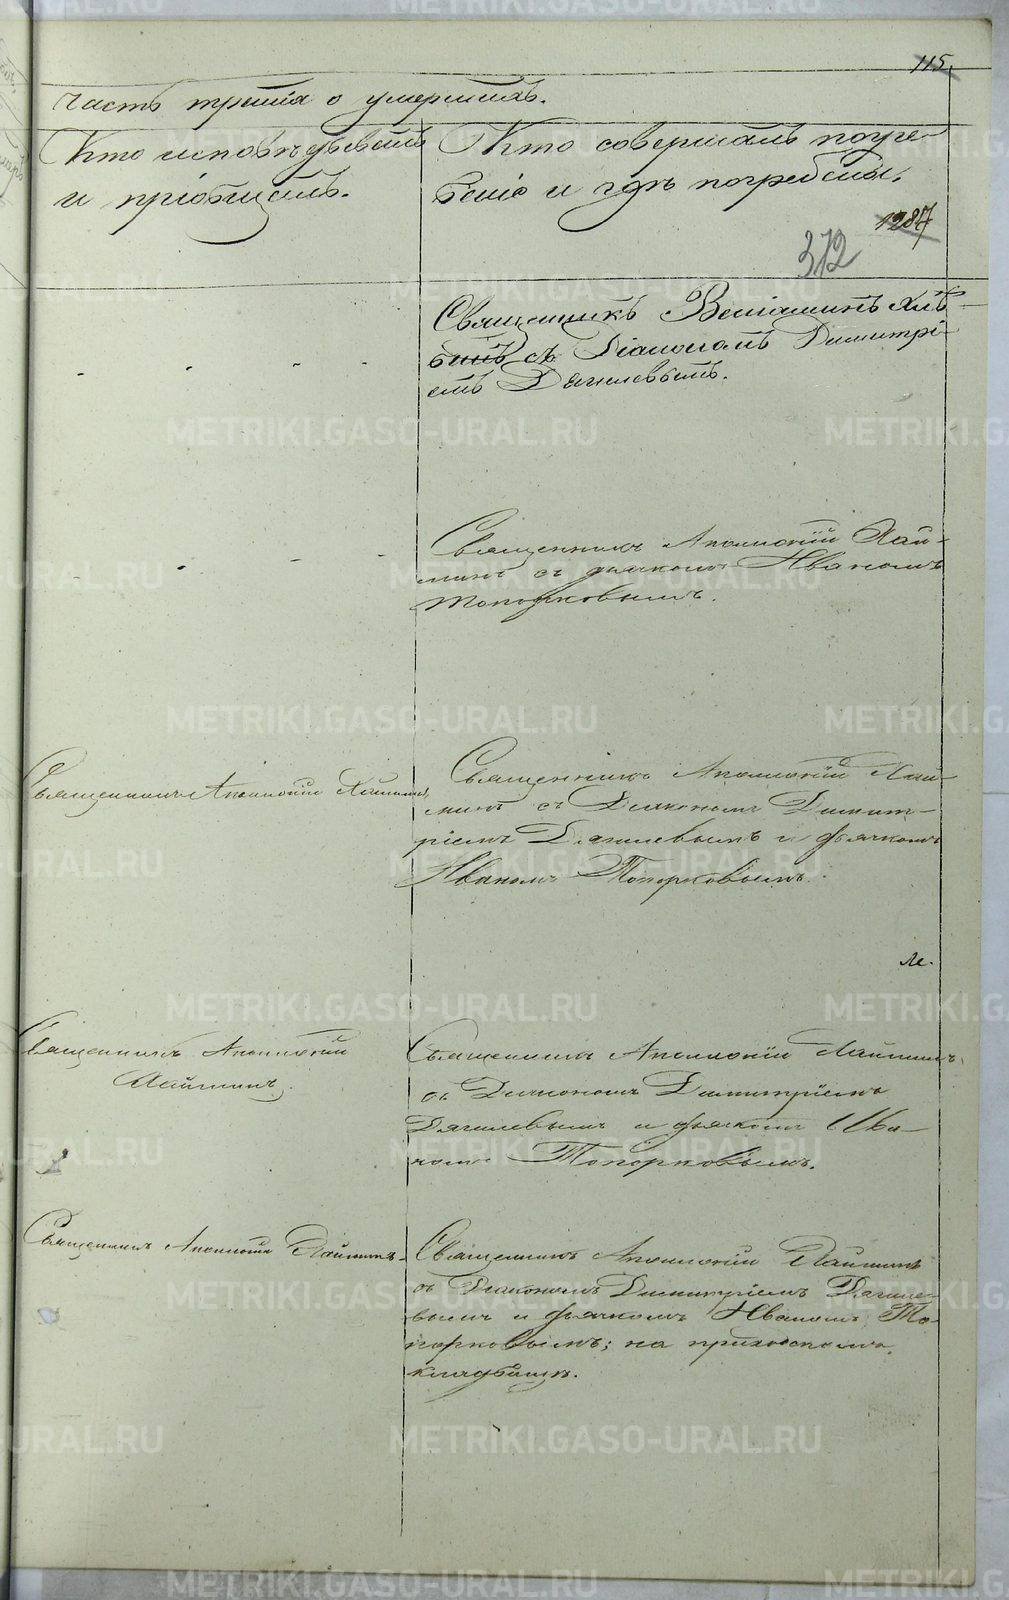 115.
часть третія о умершихъ.
Кто исповѣдывалъ
и пріобщалъ.
Кто совершалъ погре-
беніе и гдѣ погребены.
1287
312
Священникъ Веніаминъ Хлѣ-
бинъ съ Діакономъ Димитрі-
емъ Дягилевымъ.
Священникъ Аполлоній Хай-
минъ съ дьячкомъ Иваномъ
Топорковымъ.
Священникъ Аполлоній Хайминъ
Священникъ Аполлоній Хай-
минъ съ Діакономъ Димит-
ріемъ Дягилевымъ и дьячкомъ
Иваномъ Топорковымъ.
Священникъ Аполлоній
Хайминъ.
Священникъ Аполлоній Хайминъ
съ Діакономъ Димитріемъ
Дягилевымъ и дьячкомъ Ива-
номъ Топорковымъ.
Священникъ Аполлоній Хайминъ.
Священникъ Аполлоній Хайминъ
съ Діакономъ Димитріемъ Дягиле-
вымъ и дьячкомъ Иваномъ То-
порковымъ; на приходскомъ
кладбищѣ.
METRIKI.GASO-URAL.RU